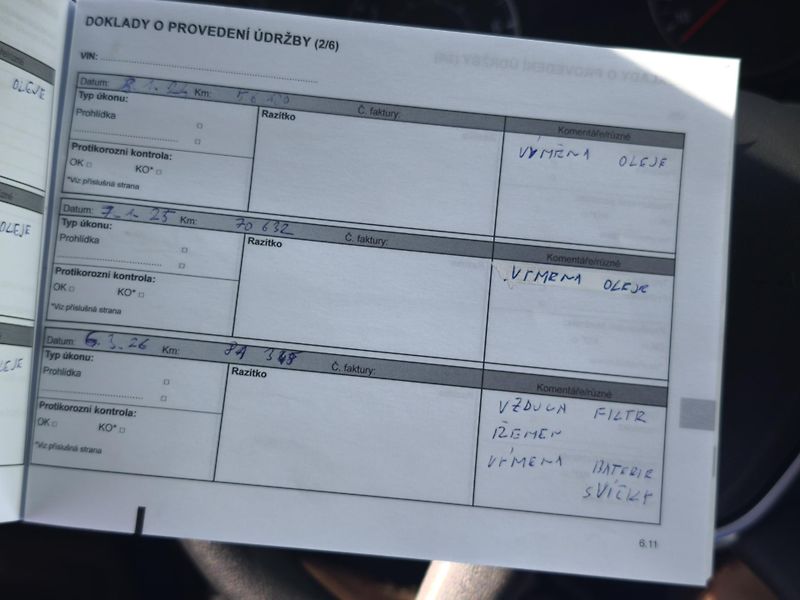 DOKLADY O PROVEDENÍ ÚDRŽBY (2/6)
VIN:
Datum: 8.1.24 Km: Č. faktury:
Typ úkonu: Razítko Komentáře/různé
Prohlídka VÝMĚNA OLEJE
Protikorozní kontrola:
OK □ KO* □
*Viz příslušná strana
Datum: 7.1.25 Km: 70 632 Č. faktury:
Typ úkonu: Razítko Komentáře/různé
Prohlídka VÝMĚNA OLEJE
Protikorozní kontrola:
OK □ KO* □
*Viz příslušná strana
Datum: 6.3.26 Km: Č. faktury:
Typ úkonu: Razítko Komentáře/různé
Prohlídka VZDUCH FILTR
ŘEMEN
Protikorozní kontrola: VÝMĚNA BATERIE
OK □ KO* □ SVÍČKY
*Viz příslušná strana
6.11
OLEJE
OLEJE